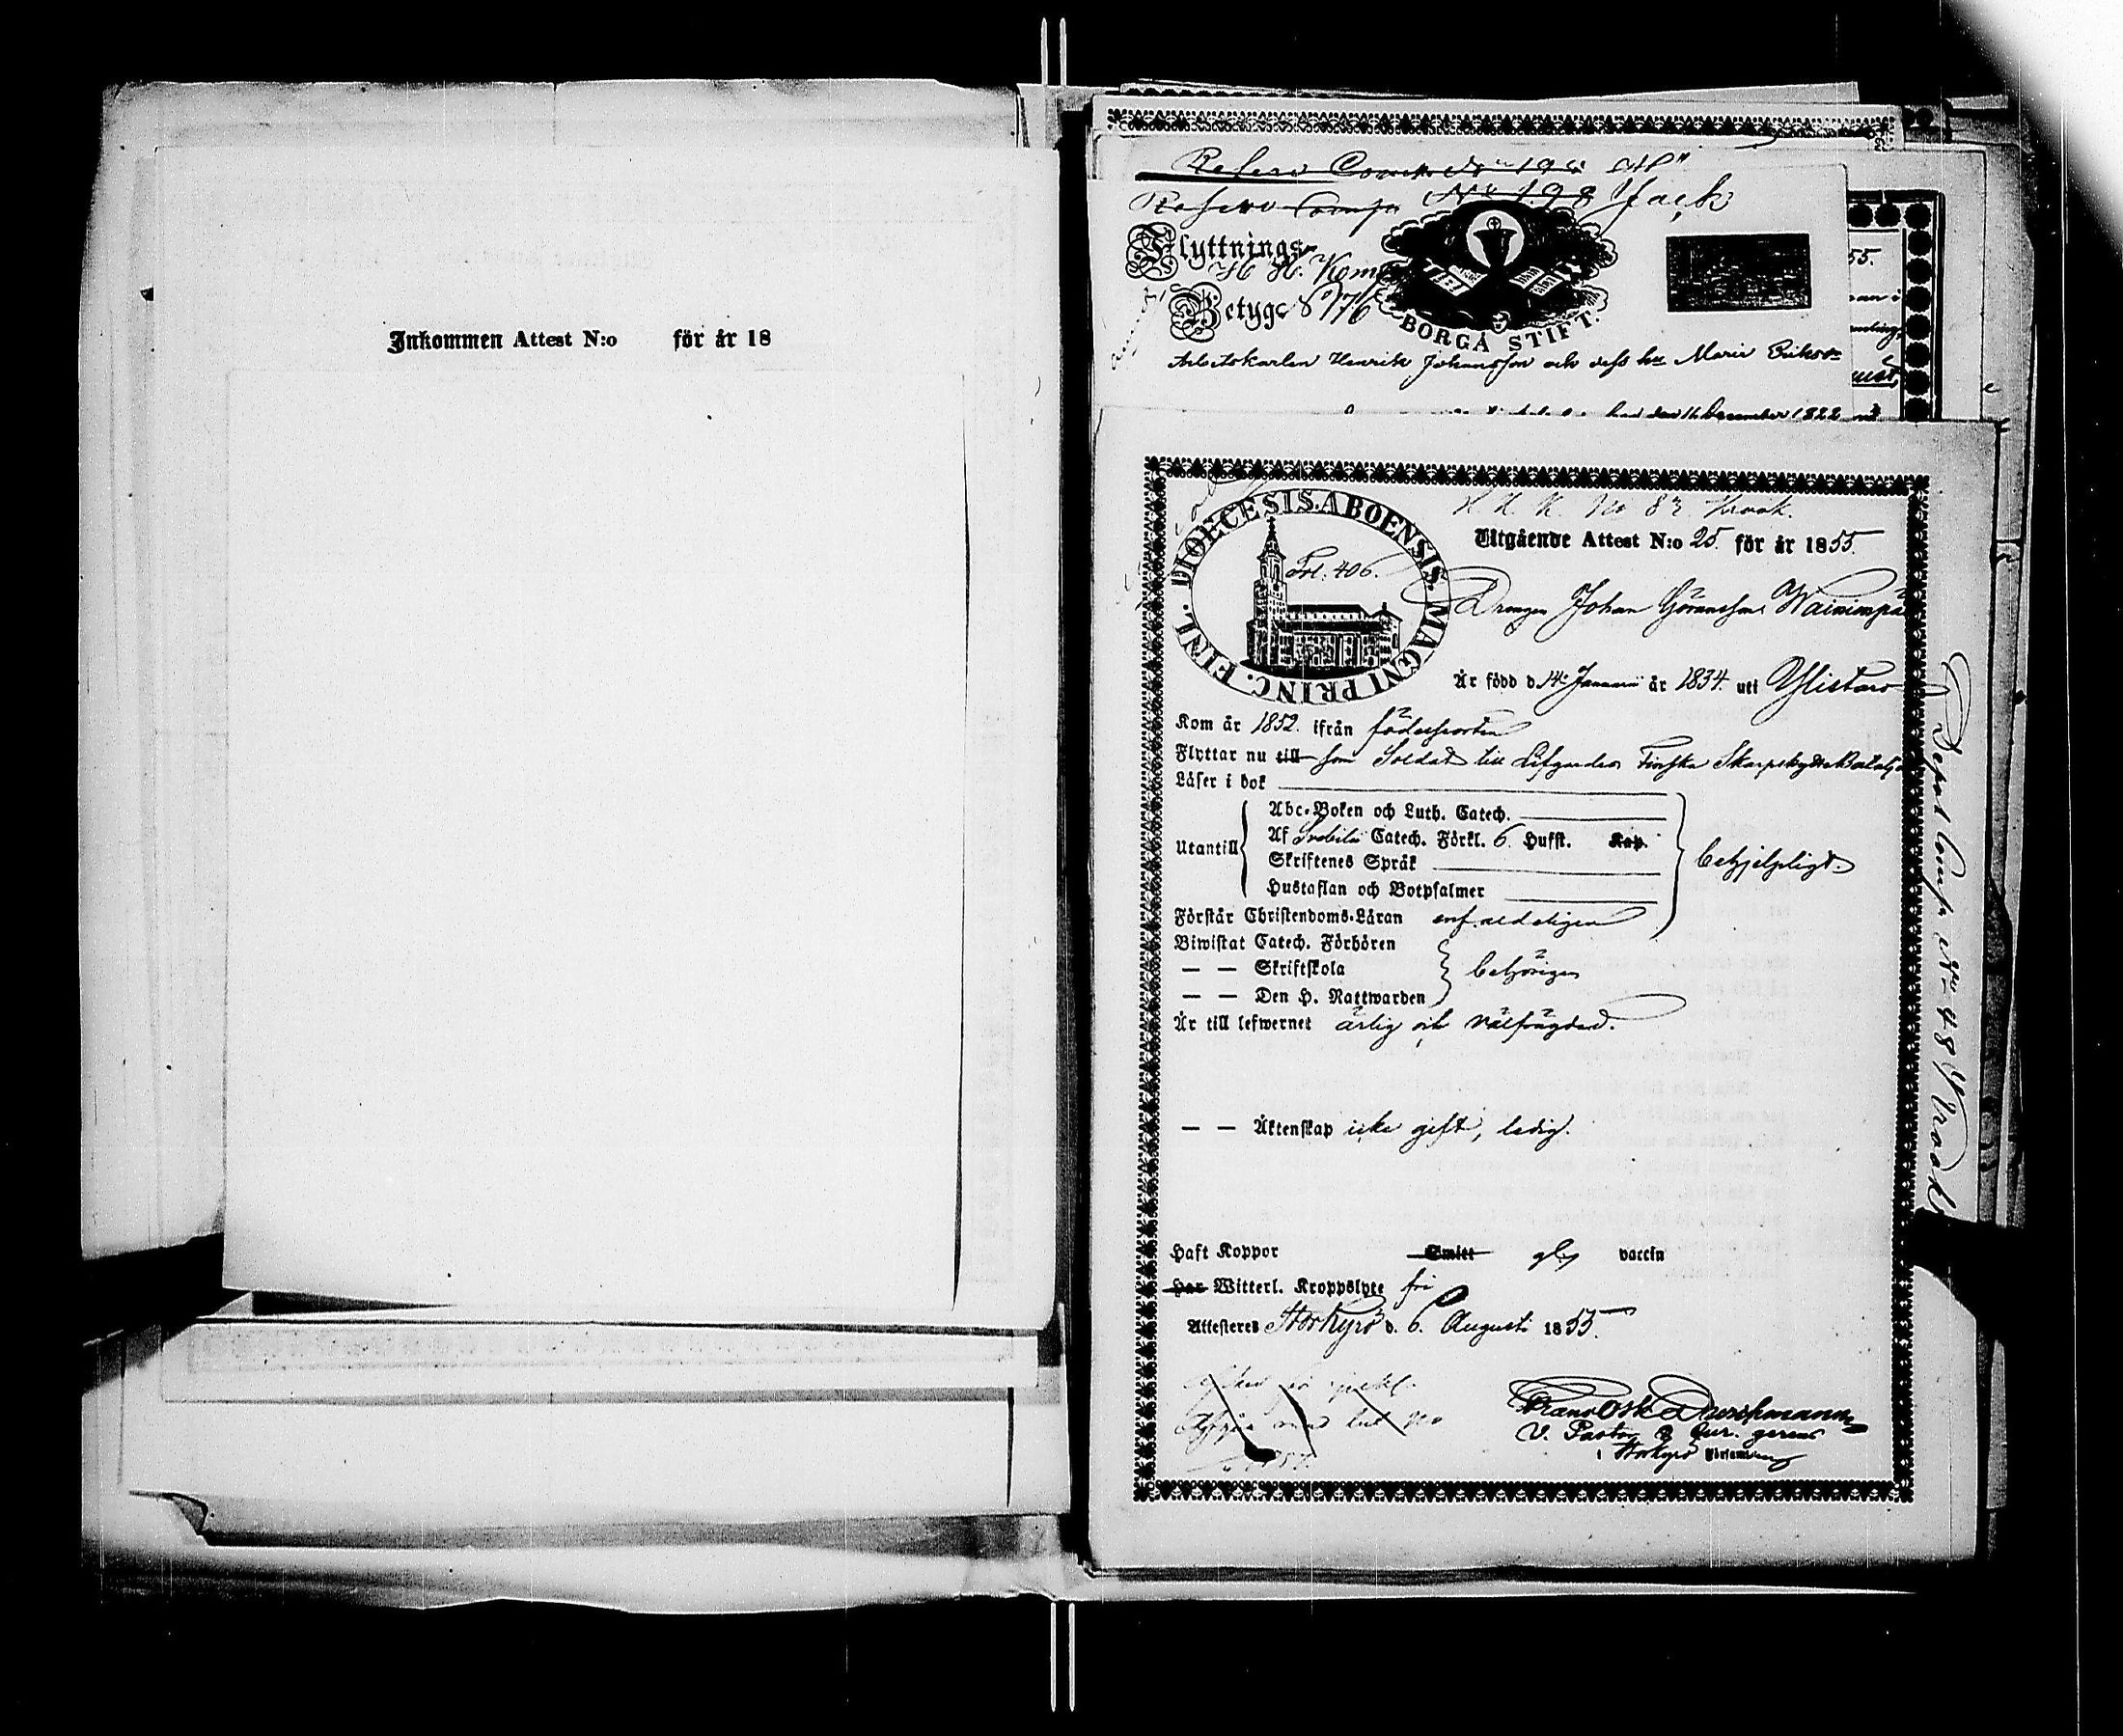 Inkommen Attest N:o för år 18
No 198 Jack
Flyttnings-
H H. Komp
Betyg No 76
BORGÅ STIFT.
Arbetskarlen Henrik Johansson och dess hu Maria Eriksdr
den 16 December 1822
55.
H. K. No 83 Krook.
DIOECESIS. ABOENSIS. MAGNI PRINC. FINL.
Fol: 406.
Utgående Attest N:o 25. för år 1855.
Drengen Johan Göransson Wainimpä
Är född d. 14 Januarii år 1834. uti Ylistaro
Kom år 1852. ifrån födelseorten
Flyttar nu till som Soldat till Lifgardes Finska Skarpskytte Bataljo
Läser i bok
Utantill
Abc-Boken och Luth. Catech.
Af Svebilii Catech. Förkl. 6. Hufst. Kap.
Skriftenes Språk
Hustaflan och Botpsalmer
behjelpligt.
Förstår Christendoms-Läran enfaldeligen
Biwistat Catech. Förhören
— — Skriftskola
— — Den H. Nattwarden
behörigen
Är till lefwernet ärlig och välfrägdad.
— — Äktenskap icke gift, ledig.
Haft Koppor Smitt vaccin
Har Witterl. Kroppslyte fri
Attesteras Storkyrö d. 6. Augusti 1855.
Frans Osk. Durchmann
V. Pastor & Cur. gerens
i Storkyro Församling
Depot Comp. No 48 Krook